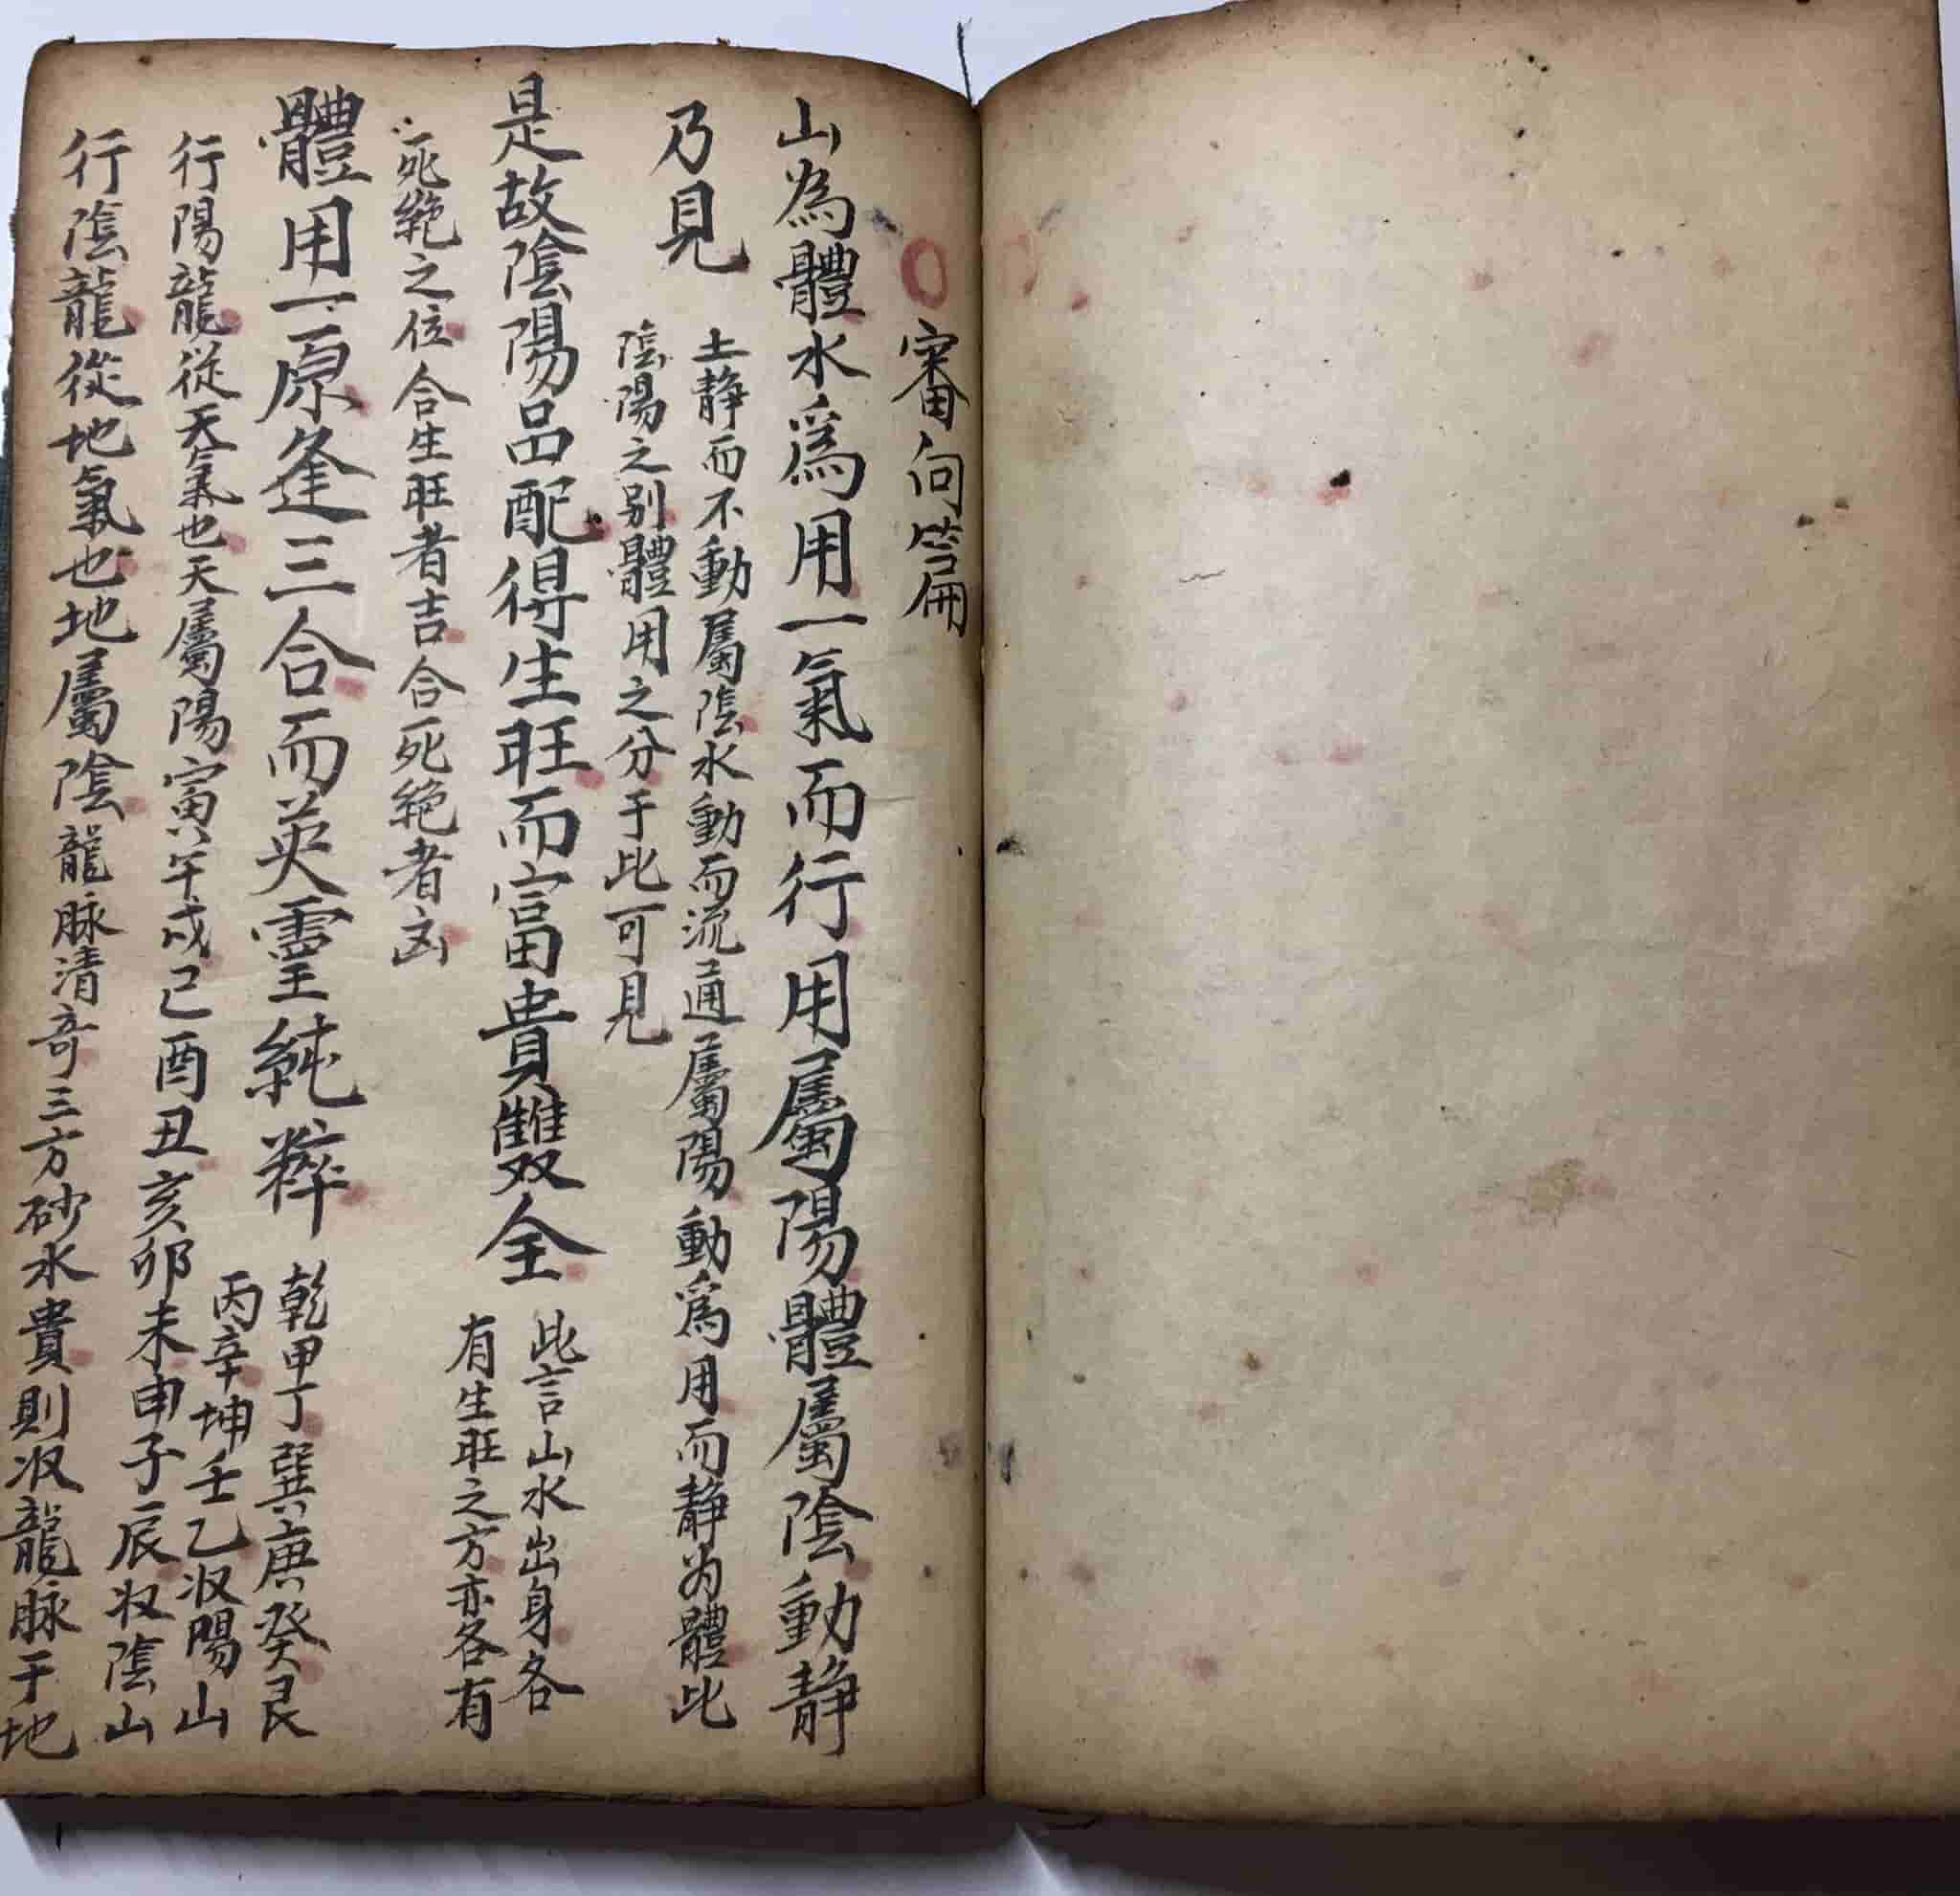 審向篇
山為體水爲用一氣而行用屬陽體屬陰動静
乃見
土静而不動屬陰水動而流通屬陽動爲用而静为體此
陰陽之别體用之分于此可見
是故陰陽品配得生旺而富貴雙全
此言山水出身各
有生旺之方亦各有
死絶之位合生旺者吉合死絶者凶
體用一原逢三合而英靈純粹
乾甲丁巽庚癸艮
丙辛坤壬乙収陽山
行陽龍從天氣也天屬陽寅午戌巳酉丑亥卯未申子辰収陰山
行陰龍從地氣也地屬陰龍脉清奇三方砂水貴則収龍脉于地